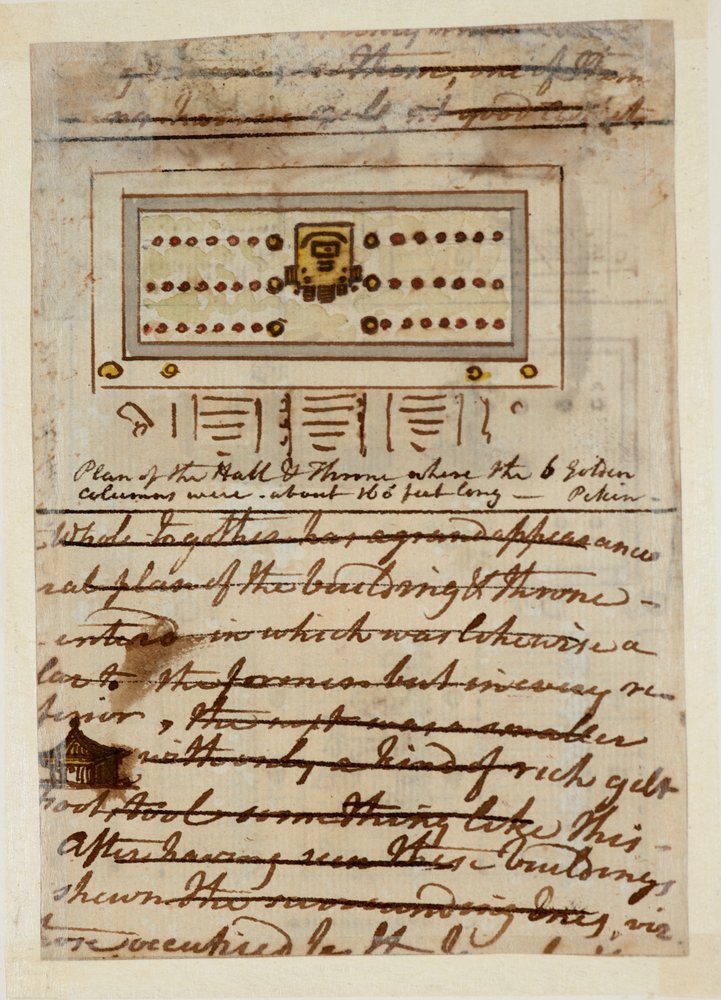 them, one of them
gilt good
Plan of the Hall & Throne where the 6 Golden
columns were. about 160 feet long — Pekin
Whole together has a grand appearance
ral plan of the building & throne –
entered in which was likewise a
lar to the former but in every re
ferior, the next was a smaller
with only a kind of rich gilt
foot stool something like this –
After having seen these buildings
shewn the surrounding ones, viz
those occupied by the